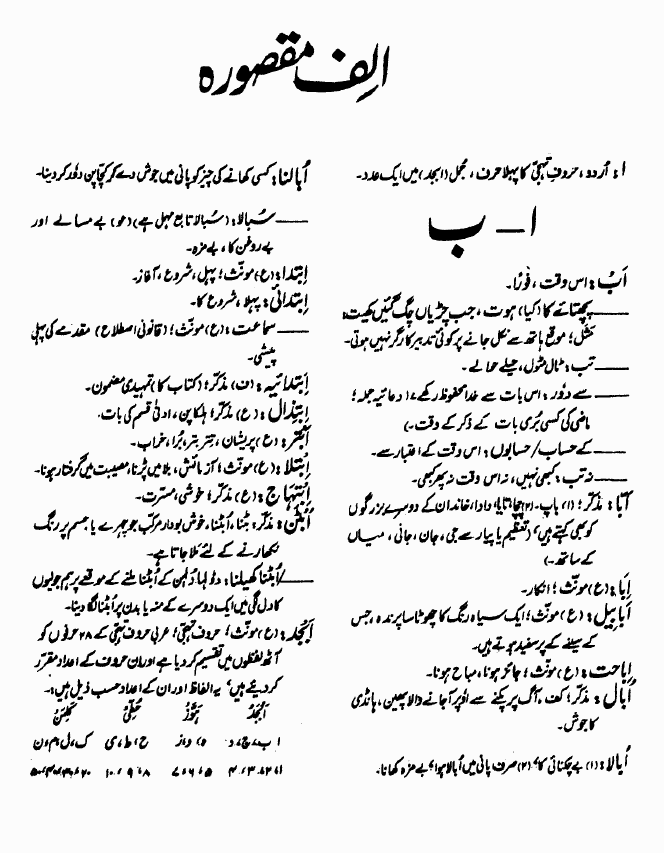 الف مقصورہ
ا: اُردو، حروفِ تہجّی کا پہلا حرف، جُمل (ابجد) میں ایک عدد۔
ا — ب
اَبْ: اس وقت، فوراً۔
—— پچھتائے کا (کیا) ہوت، جب چڑیاں چگ گئیں کھیت:
مثل؛ موقع ہاتھ سے نکل جانے پر کوئی تدبیر کارگر نہیں ہوتی۔
—— تب: ٹال مٹول، حیلے حوالے۔
—— سے دُور: اس بات سے خدا محفوظ رکھے (دعائیہ جملہ؛
ماضی کی کسی بُری بات کے ذکر کے وقت۔)
—— کے حساب/حسابوں: اس وقت کے اعتبار سے۔
—— نہ تب: کبھی نہیں، نہ اس وقت نہ پھر کبھی۔
اَبّا: مذکر؛ (۱) باپ۔ (۲) چچا، تایا، دادا، خاندان کے دوسرے بزرگوں
کو بھی کہتے ہیں؛ (تعظیم یا پیار سے جی، جان، جانی، میاں
کے ساتھ۔)
اِبا: (ع) مونث؛ انکار۔
اَبابیل: (ع) مونث؛ ایک سیاہ رنگ کا چھوٹا سا پرندہ، جس
کے سینے کے پر سفید ہوتے ہیں۔
اِباحت: (ع) مونث؛ جائز ہونا، مباح ہونا۔
اُبال: مذکر؛ کف، آگ پر پکنے سے اُوپر آجانے والا پھین، ہانڈی
کا جوش۔
اُبالا: (۱) بے چکنائی کا؛ (۲) صرف پانی میں اُبالا ہوا؛ بے مزہ کھانا۔
اُبالنا: کسی کھانے کی چیز کو پانی میں جوش دے کر کچّا پن دُور کر دینا۔
—— سُبالا: (سُبالا تابع مہمل ہے) (مو) بے مسالے اور
بے روغن کا، بے مزہ۔
اِبتدا: (ع) مونث؛ پہل، شروع، آغاز۔
اِبتدائی: پہلا، شروع کا۔
—— سماعت: (ع) مونث؛ (قانونی اصطلاح) مقدمے کی پہلی
پیشی۔
اِبتدائیہ: (ف) مذکر؛ (کتاب کا) تمہیدی مضمون۔
اِبتذال: (ع) مذکر؛ ہلکا پن، ادنیٰ قسم کی بات۔
اَبتر: (ع) پریشان، تِتر بِتر، بُرا، خراب۔
اِبتلا: (ع) مونث؛ آزمائش، بلا میں پڑنا، مصیبت میں گرفتار ہونا۔
اِبتہاج: (ع) مذکر؛ خوشی، مسرت۔
اُبٹن: مذکر؛ بٹنا، اُبٹنا، خوش بودار مرکّب جو چہرے یا جسم پر رنگ
نکھارنے کے لئے ملا جاتا ہے۔
——/اُبٹنا کھیلنا: دولہا دُلہن کے اُبٹنا ملنے کے موقعے پر ہم جولیوں
کا دل لگی میں ایک دوسرے کے منہ یا بدن پر اُبٹنا لگا دینا۔
اَبجَد: (ع) مونث؛ حروفِ تہجّی؛ عربی حروفِ تہجّی کے ۲۸ حرفوں کو
آٹھ لفظوں میں تقسیم کر دیا ہے اور ان حروف کے اعداد مقرّر
کر دیئے ہیں؛ یہ الفاظ اور ان کے اعداد حسب ذیل ہیں:۔
اَبجَد ہَوَّز حُطِّی کَلِمَن
ا، ب، ج، د ہ، و، ز ح، ط، ی ک، ل، م، ن
۱، ۲، ۳، ۴ ۵، ۶، ۷ ۸، ۹، ۱۰ ۲۰، ۳۰، ۴۰، ۵۰